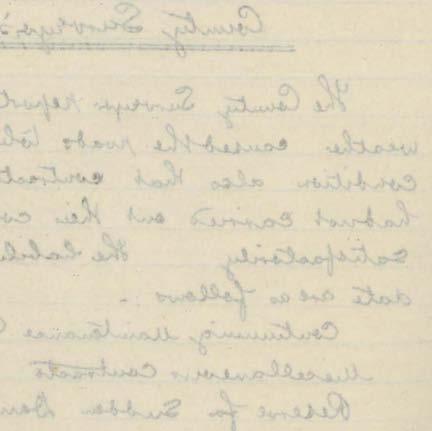 County Surveyor's
The County Surveyor report
weather caused the roads to be
condition also that contract
had not carried out their co
satisfactorily the liabil
date are as follows :-
Continuing Maintenance C
Miscellaneous Contracts
Reserve for Sudden Dam